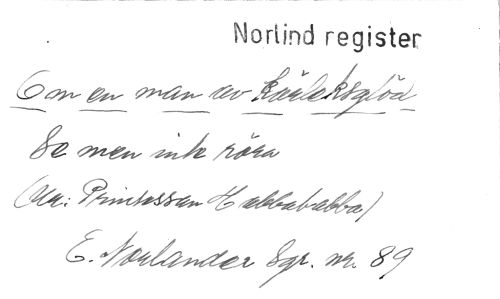 Norlind register
Om en man av kärleksglöd
Se men inte röra
(Ur: Prinsessan Habbababba)
E. Norlander Sgr. nr. 89